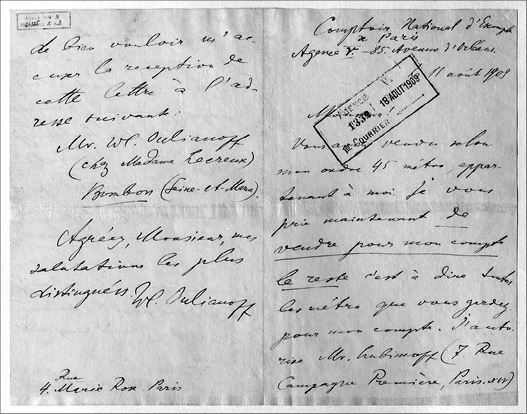 Comptoir National d'Escompte
à Paris
Agence V. - 85 Avenue d'Orléans.
11 août 1909
AGENCE V.
1339 18 AOUT 1909
COURRIER
Vous avez vendu selon
mon ordre 45 métro, appar-
tenant à moi. Je vous
prie maintenant de
vendre pour mon compte
le reste c'est à dire toutes
les métro que vous gardez
pour mon compte. J'auto-
rise Mr. Lubimoff (7 Rue
Campagne Première, Paris. XIV)
de bien vouloir m'ac-
cuser la reception de
cette lettre à l'ad-
resse suivante:
Mr. Wl. Oulianoff
(chez Madame Lecreux)
Bombon (Seine-et-Marne)
Agréez, Monsieur, mes
salutations les plus
distinguées. Wl. Oulianoff
Rue
4. Marie Rose. Paris